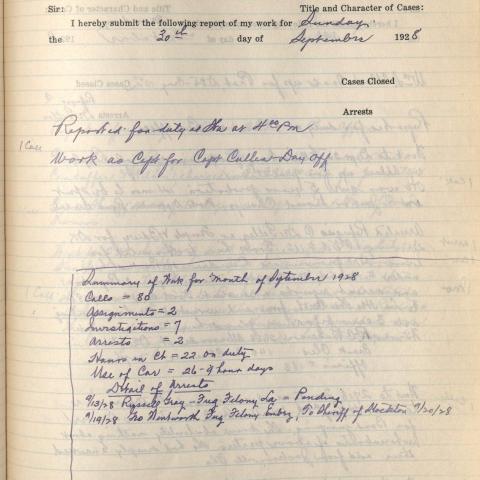 Sir:
Title and Character of Cases:
I hereby submit the following report of my work for Sunday
the 30th day of September 1928
Cases Closed
Arrests
Reported for duty at Hu at 4 00 Pm
1 Case
Work as Capt for Capt Cullea Day Off
Summary of Work for Month of September 1928
Calls = 80
Assignments = 2
Investigations = 7
Arrests = 2
Hours in Ct = 22 on duty
Use of Car = 26-9 hour days
Detail of Arrests
9/13/28 Russell Gray - Fug Felony La = Pending
9/19/28 Geo Wentworth Fug Felony Embz, To Sheriff of Stockton 9/20/28